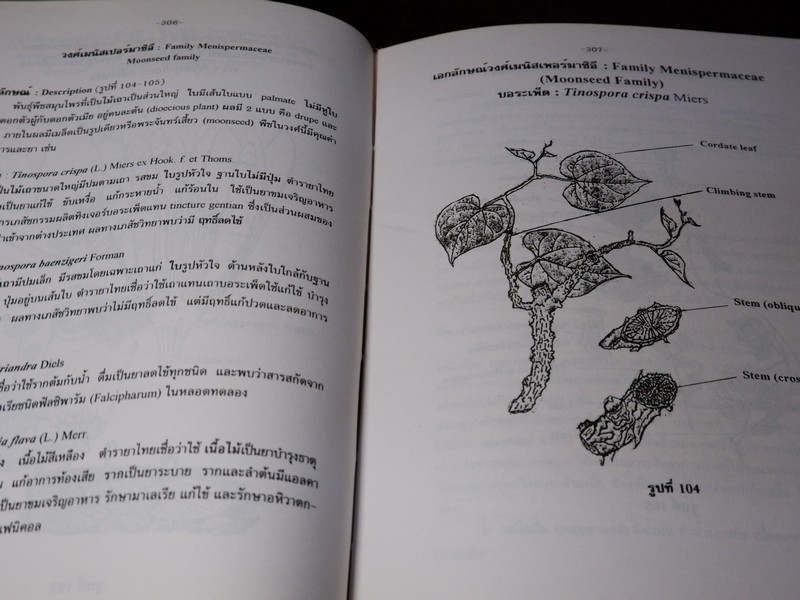 -306-
วงศ์เมนิสเปอร์มาซีลี : Family Menispermaceae
Moonseed family
ลักษณ์ : Description (รูปที่ 104-105)
พันธุ์พืชสมุนไพรที่เป็นไม้เถาเป็นส่วนใหญ่ ใบมีเส้นใบแบบ palmate ไม่มีหูใบ
ดอกตัวผู้กับดอกตัวเมีย อยู่คนละต้น (dioecious plant) ผลมี 2 แบบ คือ drupe และ
ภายในผลมีเมล็ดเป็นรูปเคียวหรือพระจันทร์เสี้ยว (moonseed) พืชในวงศ์นี้มีคุณค่า
ารและยา เช่น
: Tinospora crispa (L.) Miers ex Hook. f. et Thoms.
ป็นไม้เถาขนาดใหญ่มีปมตามเถา รสขม ใบรูปหัวใจ ฐานใบไม่มีปุ่ม ตำรายาไทย
เป็นยาแก้ไข้ ขับเหงื่อ แก้กระหายน้ำ แก้ร้อนใน ใช้เป็นยาขมเจริญอาหาร
ารเภสัชกรรมผลิตทิงเจอร์บอระเพ็ดแทน tincture gentian ซึ่งเป็นส่วนผสมของ
ำเข้าจากต่างประเทศ ผลทางเภสัชวิทยาพบว่ามี ฤทธิ์ลดไข้
nospora baenzigeri Forman
เถามีปมเล็ก มีรสขมโดยเฉพาะเถาแก่ ใบรูปหัวใจ ด้านหลังใบใกล้กับฐาน
ปุ่มอยู่บนเส้นใบ ตำรายาไทยเชื่อว่าใช้เถาแทนเถาบอระเพ็ดใช้แก้ไข้ บำรุง
ผลทางเภสัชวิทยาพบว่าไม่มีฤทธิ์ลดไข้ แต่มีฤทธิ์แก้ปวดและลดอาการ
riandra Diels
ชื่อว่าใช้รากต้มกับน้ำ ดื่มเป็นยาลดไข้ทุกชนิด และพบว่าสารสกัดจาก
เรียชนิดฟัลซิพารัม (Falcipharum) ในหลอดทดลอง
ia flava (L.) Merr.
ง เนื้อไม้สีเหลือง ตำรายาไทยเชื่อว่าใช้ เนื้อไม้เป็นยาบำรุงธาตุ
แก้อาการท้องเสีย รากเป็นยาระบาย รากและลำต้นมีแอลคา
เป็นยาขมเจริญอาหาร รักษามาเลเรีย แก้ไข้ และรักษาอหิวาตก-
เฟนิคอล
-307-
เอกลักษณ์วงศ์เมนิสเพอร์มาซีลี : Family Menispermaceae
(Moonseed Family)
บอระเพ็ด : Tinospora crispa Miers
Cordate leaf
Climbing stem
Stem (obliqu
Stem (cros
รูปที่ 104